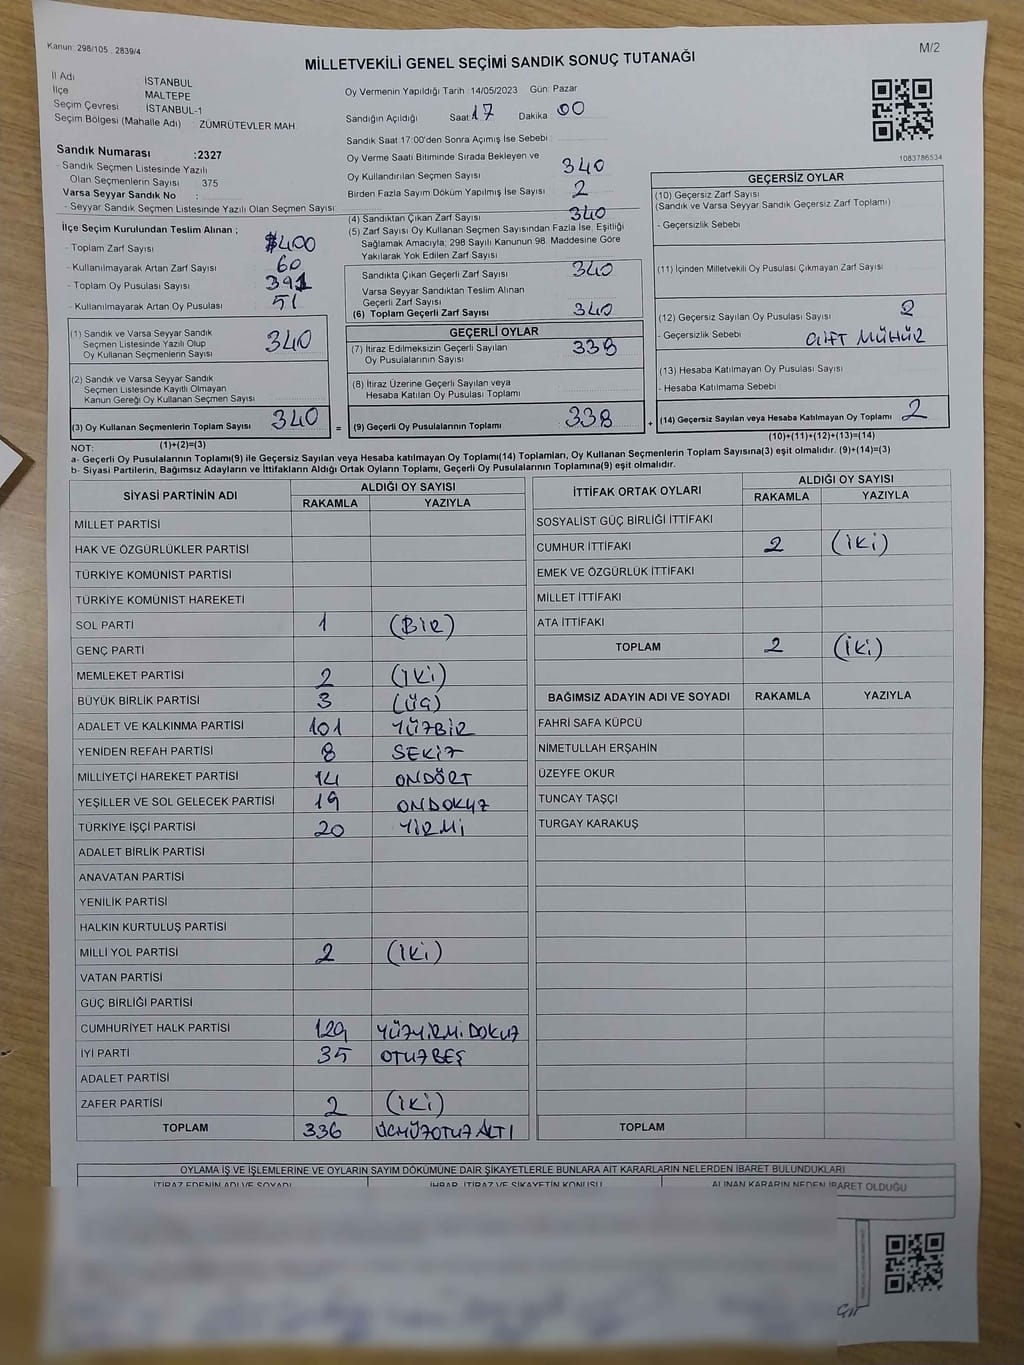 Kanun: 298/105 2839/4
M/2
MİLLETVEKİLİ GENEL SEÇİMİ SANDIK SONUÇ TUTANAĞI
İl Adı İSTANBUL
İlçe MALTEPE
Seçim Çevresi İSTANBUL-1
Seçim Bölgesi (Mahalle Adı) : ZÜMRÜTEVLER MAH
Oy Vermenin Yapıldığı Tarih : 14/05/2023 Gün: Pazar
Sandığın Açıldığı Saat 17 Dakika 00
Sandık Saat 17:00'den Sonra Açımış İse Sebebi
Oy Verme Saati Bitiminde Sırada Bekleyen ve
Oy Kullandırılan Seçmen Sayısı 340
Birden Fazla Sayım Döküm Yapılmış İse Sayısı 2
1083786534
Sandık Numarası :2327
- Sandık Seçmen Listesinde Yazılı
Olan Seçmenlerin Sayısı : 375
Varsa Seyyar Sandık No :
- Seyyar Sandık Seçmen Listesinde Yazılı Olan Seçmen Sayısı
İlçe Seçim Kurulundan Teslim Alınan ;
- Toplam Zarf Sayısı 400
- Kullanılmayarak Artan Zarf Sayısı 60
- Toplam Oy Pusulası Sayısı 391
- Kullanılmayarak Artan Oy Pusulası 51
(1) Sandık ve Varsa Seyyar Sandık
Seçmen Listesinde Yazılı Olup
Oy Kullanan Seçmenlerin Sayısı 340
(2) Sandık ve Varsa Seyyar Sandık
Seçmen Listesinde Kayıtlı Olmayan
Kanun Gereği Oy Kullanan Seçmen Sayısı
(3) Oy Kullanan Seçmenlerin Toplam Sayısı 340 =
(1)+(2)=(3)
(4) Sandıktan Çıkan Zarf Sayısı 340
(5) Zarf Sayısı Oy Kullanan Seçmen Sayısından Fazla İse, Eşitliği
Sağlamak Amacıyla; 298 Sayılı Kanunun 98. Maddesine Göre
Yakılarak Yok Edilen Zarf Sayısı
Sandıkta Çıkan Geçerli Zarf Sayısı 340
Varsa Seyyar Sandıktan Teslim Alınan
Geçerli Zarf Sayısı
(6) Toplam Geçerli Zarf Sayısı 340
GEÇERLİ OYLAR
(7) İtiraz Edilmeksizin Geçerli Sayılan
Oy Pusulalarının Sayısı 338
(8) İtiraz Üzerine Geçerli Sayılan veya
Hesaba Katılan Oy Pusulası Toplamı
(9) Geçerli Oy Pusulalarının Toplamı 338 +
GEÇERSİZ OYLAR
(10) Geçersiz Zarf Sayısı
(Sandık ve Varsa Seyyar Sandık Geçersiz Zarf Toplamı)
- Geçersizlik Sebebi
(11) İçinden Milletvekili Oy Pusulası Çıkmayan Zarf Sayısı
(12) Geçersiz Sayılan Oy Pusulası Sayısı 2
- Geçersizlik Sebebi ÇİFT MÜHÜR
(13) Hesaba Katılmayan Oy Pusulası Sayısı
- Hesaba Katılmama Sebebi
(14) Geçersiz Sayılan veya Hesaba Katılmayan Oy Toplamı 2
(10)+(11)+(12)+(13)=(14)
NOT:
a- Geçerli Oy Pusulalarının Toplamı(9) ile Geçersiz Sayılan veya Hesaba katılmayan Oy Toplamı(14) Toplamları, Oy Kullanan Seçmenlerin Toplam Sayısına(3) eşit olmalıdır. (9)+(14)=(3)
b- Siyasi Partilerin, Bağımsız Adayların ve İttifakların Aldığı Ortak Oyların Toplamı, Geçerli Oy Pusulalarının Toplamına(9) eşit olmalıdır.
SİYASİ PARTİNİN ADI ALDIĞI OY SAYISI
RAKAMLA YAZIYLA
MİLLET PARTİSİ
HAK VE ÖZGÜRLÜKLER PARTİSİ
TÜRKİYE KOMÜNİST PARTİSİ
TÜRKİYE KOMÜNİST HAREKETİ
SOL PARTİ 1 (BİR)
GENÇ PARTİ
MEMLEKET PARTİSİ 2 (İKİ)
BÜYÜK BİRLİK PARTİSİ 3 (ÜÇ)
ADALET VE KALKINMA PARTİSİ 101 YÜZBİR
YENİDEN REFAH PARTİSİ 8 SEKİZ
MİLLİYETÇİ HAREKET PARTİSİ 14 ONDÖRT
YEŞİLLER VE SOL GELECEK PARTİSİ 19 ONDOKUZ
TÜRKİYE İŞÇİ PARTİSİ 20 YİRMİ
ADALET BİRLİK PARTİSİ
ANAVATAN PARTİSİ
YENİLİK PARTİSİ
HALKIN KURTULUŞ PARTİSİ
MİLLİ YOL PARTİSİ 2 (İKİ)
VATAN PARTİSİ
GÜÇ BİRLİĞİ PARTİSİ
CUMHURİYET HALK PARTİSİ 129 YÜZYİRMİDOKUZ
İYİ PARTİ 35 OTUZBEŞ
ADALET PARTİSİ
ZAFER PARTİSİ 2 (İKİ)
TOPLAM 336 ÜÇYÜZOTUZALTI
İTTİFAK ORTAK OYLARI ALDIĞI OY SAYISI
RAKAMLA YAZIYLA
SOSYALİST GÜÇ BİRLİĞİ İTTİFAKI
CUMHUR İTTİFAKI 2 (İKİ)
EMEK VE ÖZGÜRLÜK İTTİFAKI
MİLLET İTTİFAKI
ATA İTTİFAKI
TOPLAM 2 (İKİ)
BAĞIMSIZ ADAYIN ADI VE SOYADI RAKAMLA YAZIYLA
FAHRİ SAFA KÜPCÜ
NİMETULLAH ERŞAHİN
ÜZEYFE OKUR
TUNCAY TAŞÇI
TURGAY KARAKUŞ
TOPLAM
OYLAMA İŞ VE İŞLEMLERİNE VE OYLARIN SAYIM DÖKÜMÜNE DAİR ŞİKAYETLERLE BUNLARA AİT KARARLARIN NELERDEN İBARET BULUNDUKLARI
İTİRAZ EDENİN ADI VE SOYADI İHBAR, İTİRAZ VE ŞİKAYETİN KONUSU ALINAN KARARIN NEDEN İBARET OLDUĞU